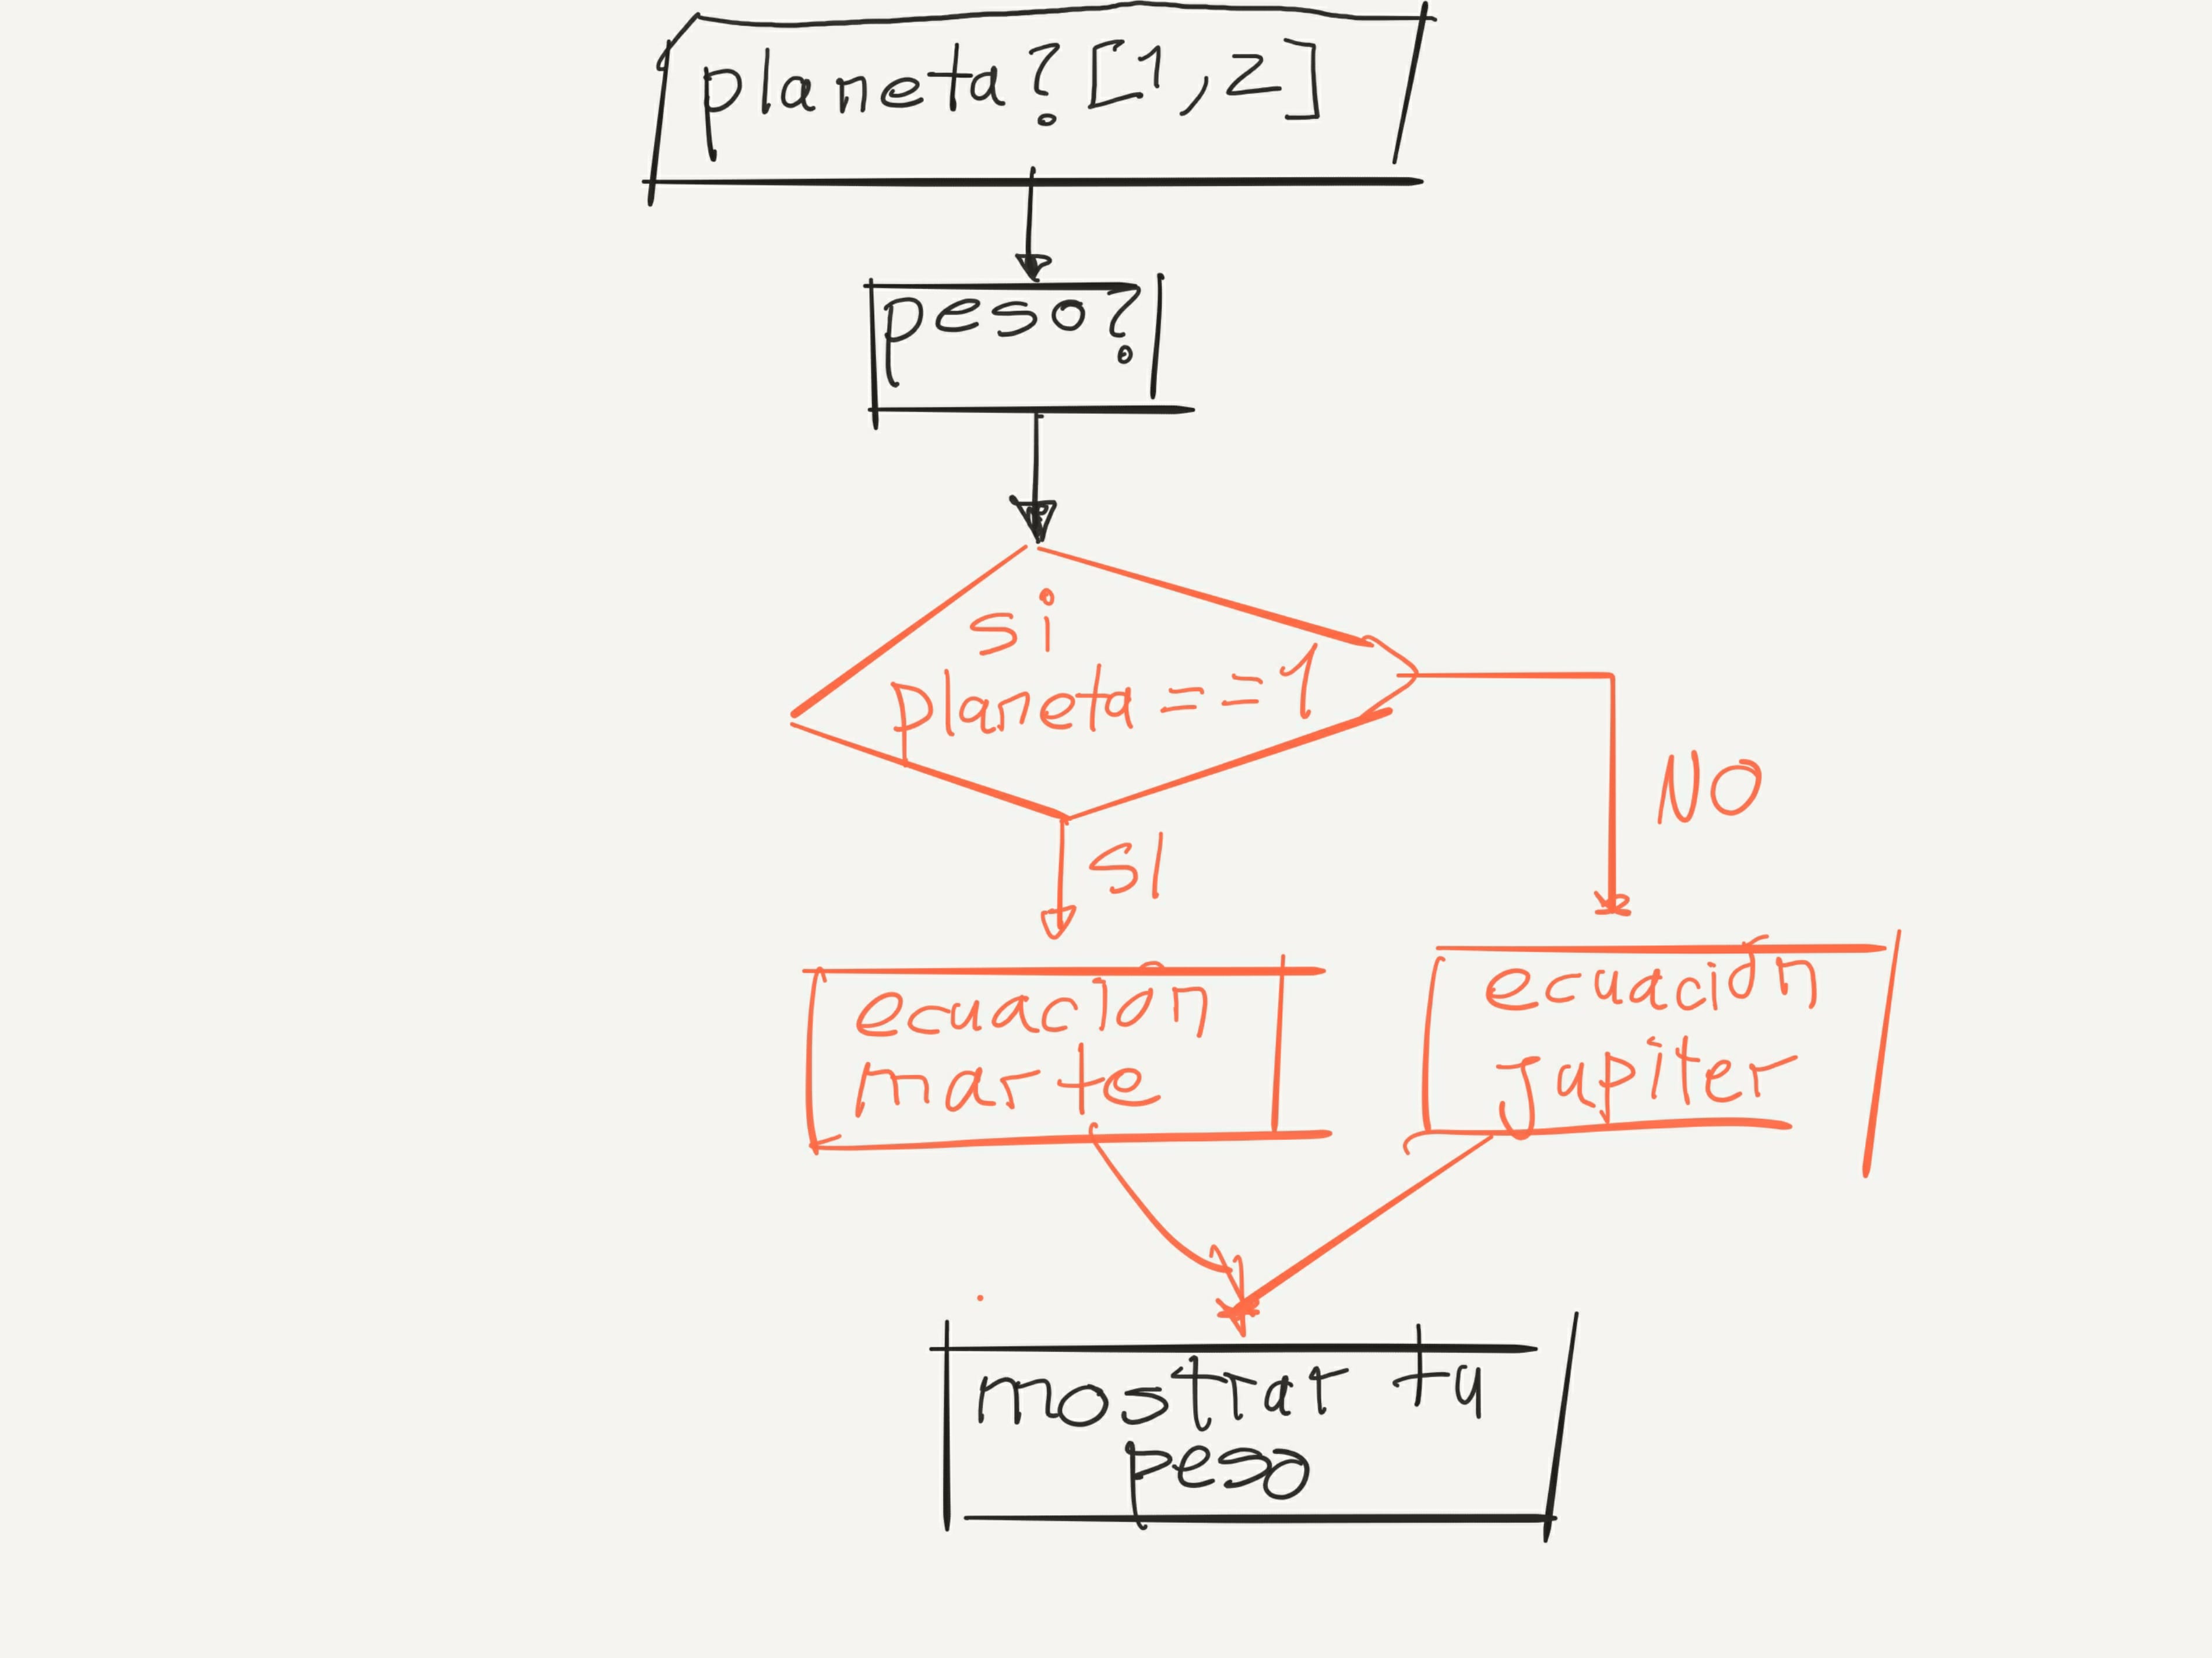 planeta? [1,2]
peso?
si
planeta == 1
NO
SI
ecuación
marte
ecuación
jupiter
mostrar tu
peso